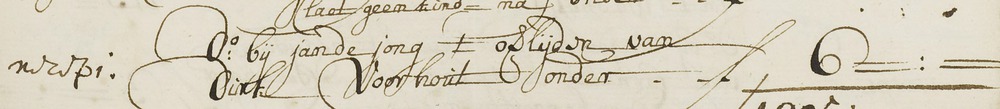 laat geen kind= na / onder
Do: bij jan de jong t oflijden van
Dirk Voorhout onder - - f 6 = : =